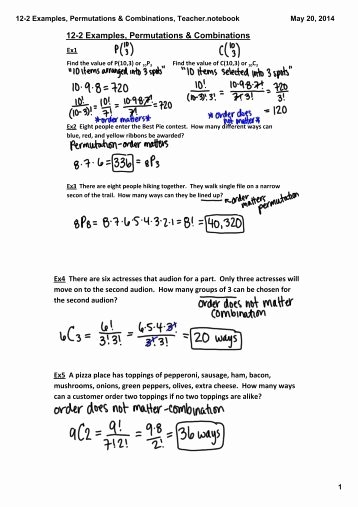 12-2 Examples, Permutations & Combinations, Teacher.notebook May 20, 2014
12-2 Examples, Permutations & Combinations
Ex1 P(10 3) C(10 3)
Find the value of P(10,3) or ₁₀P₃ Find the value of C(10,3) or ₁₀C₃
"10 items arranged into 3 spots" "10 items selected into 3 spots"
10·9·8 = 720
10!/(10-3)! = 10!/7! = 10·9·8·7!/7! = 720 10!/(10-3)!3! = 10·9·8·7!/7!3! = 720/3!
= 120
*order matters* *order does not matter*
Ex2 Eight people enter the Best Pie contest. How many different ways can
blue, red, and yellow ribbons be awarded?
Permutation-order matters
8·7·6 = 336 = 8P3
Ex3 There are eight people hiking together. They walk single file on a narrow
secon of the trail. How many ways can they be lined up? order matters permutation
8P8 = 8·7·6·5·4·3·2·1 = 8! = 40,320
Ex4 There are six actresses that audion for a part. Only three actresses will
move on to the second audion. How many groups of 3 can be chosen for
the second audion? order does not matter
combination
6C3 = 6!/3!3! = 6·5·4·3!/3!3! = 20 ways
Ex5 A pizza place has toppings of pepperoni, sausage, ham, bacon,
mushrooms, onions, green peppers, olives, extra cheese. How many ways
can a customer order two toppings if no two toppings are alike?
order does not matter-combination
9C2 = 9!/7!2! = 9·8/2! = 36 ways
1